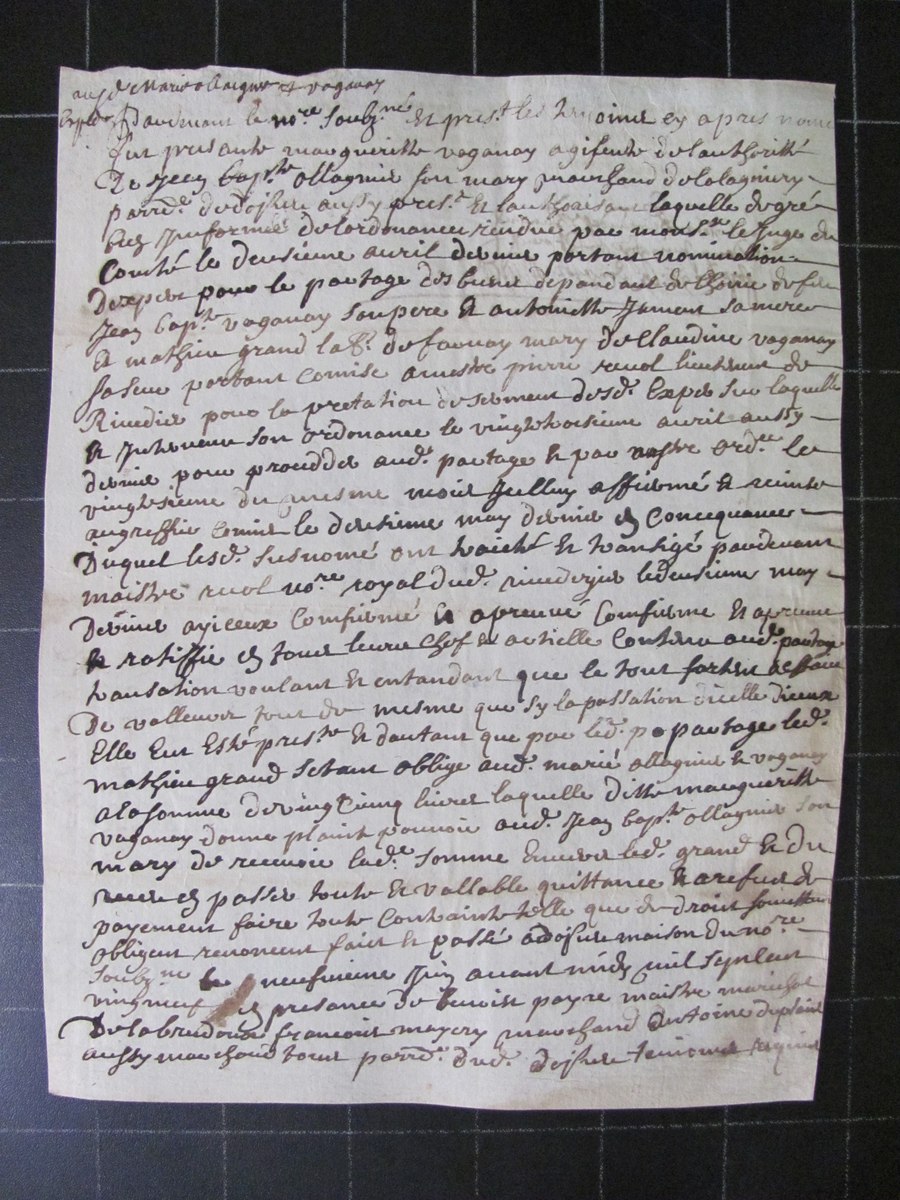 Marie ollagnier et vaganay
Expedie Pardevant le no.re soubz.né Et pres.t les temoins cy apres nomé
fut presante margueritte vaganay agissente de lauthoritté
De Jean bap.te ollagnier son mary marchand de lalagniery
parr.e de doisieu aussy pres.t Et lauthorisant laquelle de gré
bien Informée de lordonance rendue par mons.r le Juge du
Comté le deusieme avril dernier portant nomination
Dexpert pour le partage des biens depandant de lhoirie de feu
Jean bap.te vaganay son pere Et antoinette Jamen sa mere
Et mathieu grand lab.r de farnay mary de Claudine vaganay
sa seur portant Comise a mestre pierre revol lieutenent de
Rivedier pour la pretation de serment desd. Expers sur laquelle
Et Intervenu son ordonance le vingtroisieme avril aussy
dernier pour proceder aud. partage Et par autre ord.ce le
vingtsieme du mesme mois Icelluy affirmé Et remise
au greffe comise le deusieme may dernier En Concequance
Duquel lesd. susnomé ont traicté Et transigé pardevant
maistre revol no.re royal dud. rivedegier le deusieme may
Dernier ayiceux Comfirmé Et apreuvé Comfirme Et apreuve
Et ratiffie En tous leurs Chef Et article Contenu aud. partage
transation voulant Et entandant que le tout sortent a effait
De valleur tout de mesme que sy la passation dicelle Diceux
Elle Eut Esté pres.te Et dautant que par led. partage led.
mathieu grand setant oblige aud. marié ollagnier Et vaganay
a la somme de vingt cinq livres laquelle ditte margueritte
vaganay donne plaint pouvoir aud. Jean bap.te ollagnier son
mary de recevoir lad.e somme Envers led. grand Et du
receu En passer toute Et vallable quittance Et a refus de
payement faire toute Contrainte telle que de droit soumettant
obligent renoncent fait Et passé a doisieu maison du no.re
soubz.ne le neufvieme Juin avant midy mil sept cent
vingneuf En presance de benoist payre maistre marichal
De francois mayery marchand Antoine deplaint
aussy marchand tous parr.e dud. doisieu temoins requis